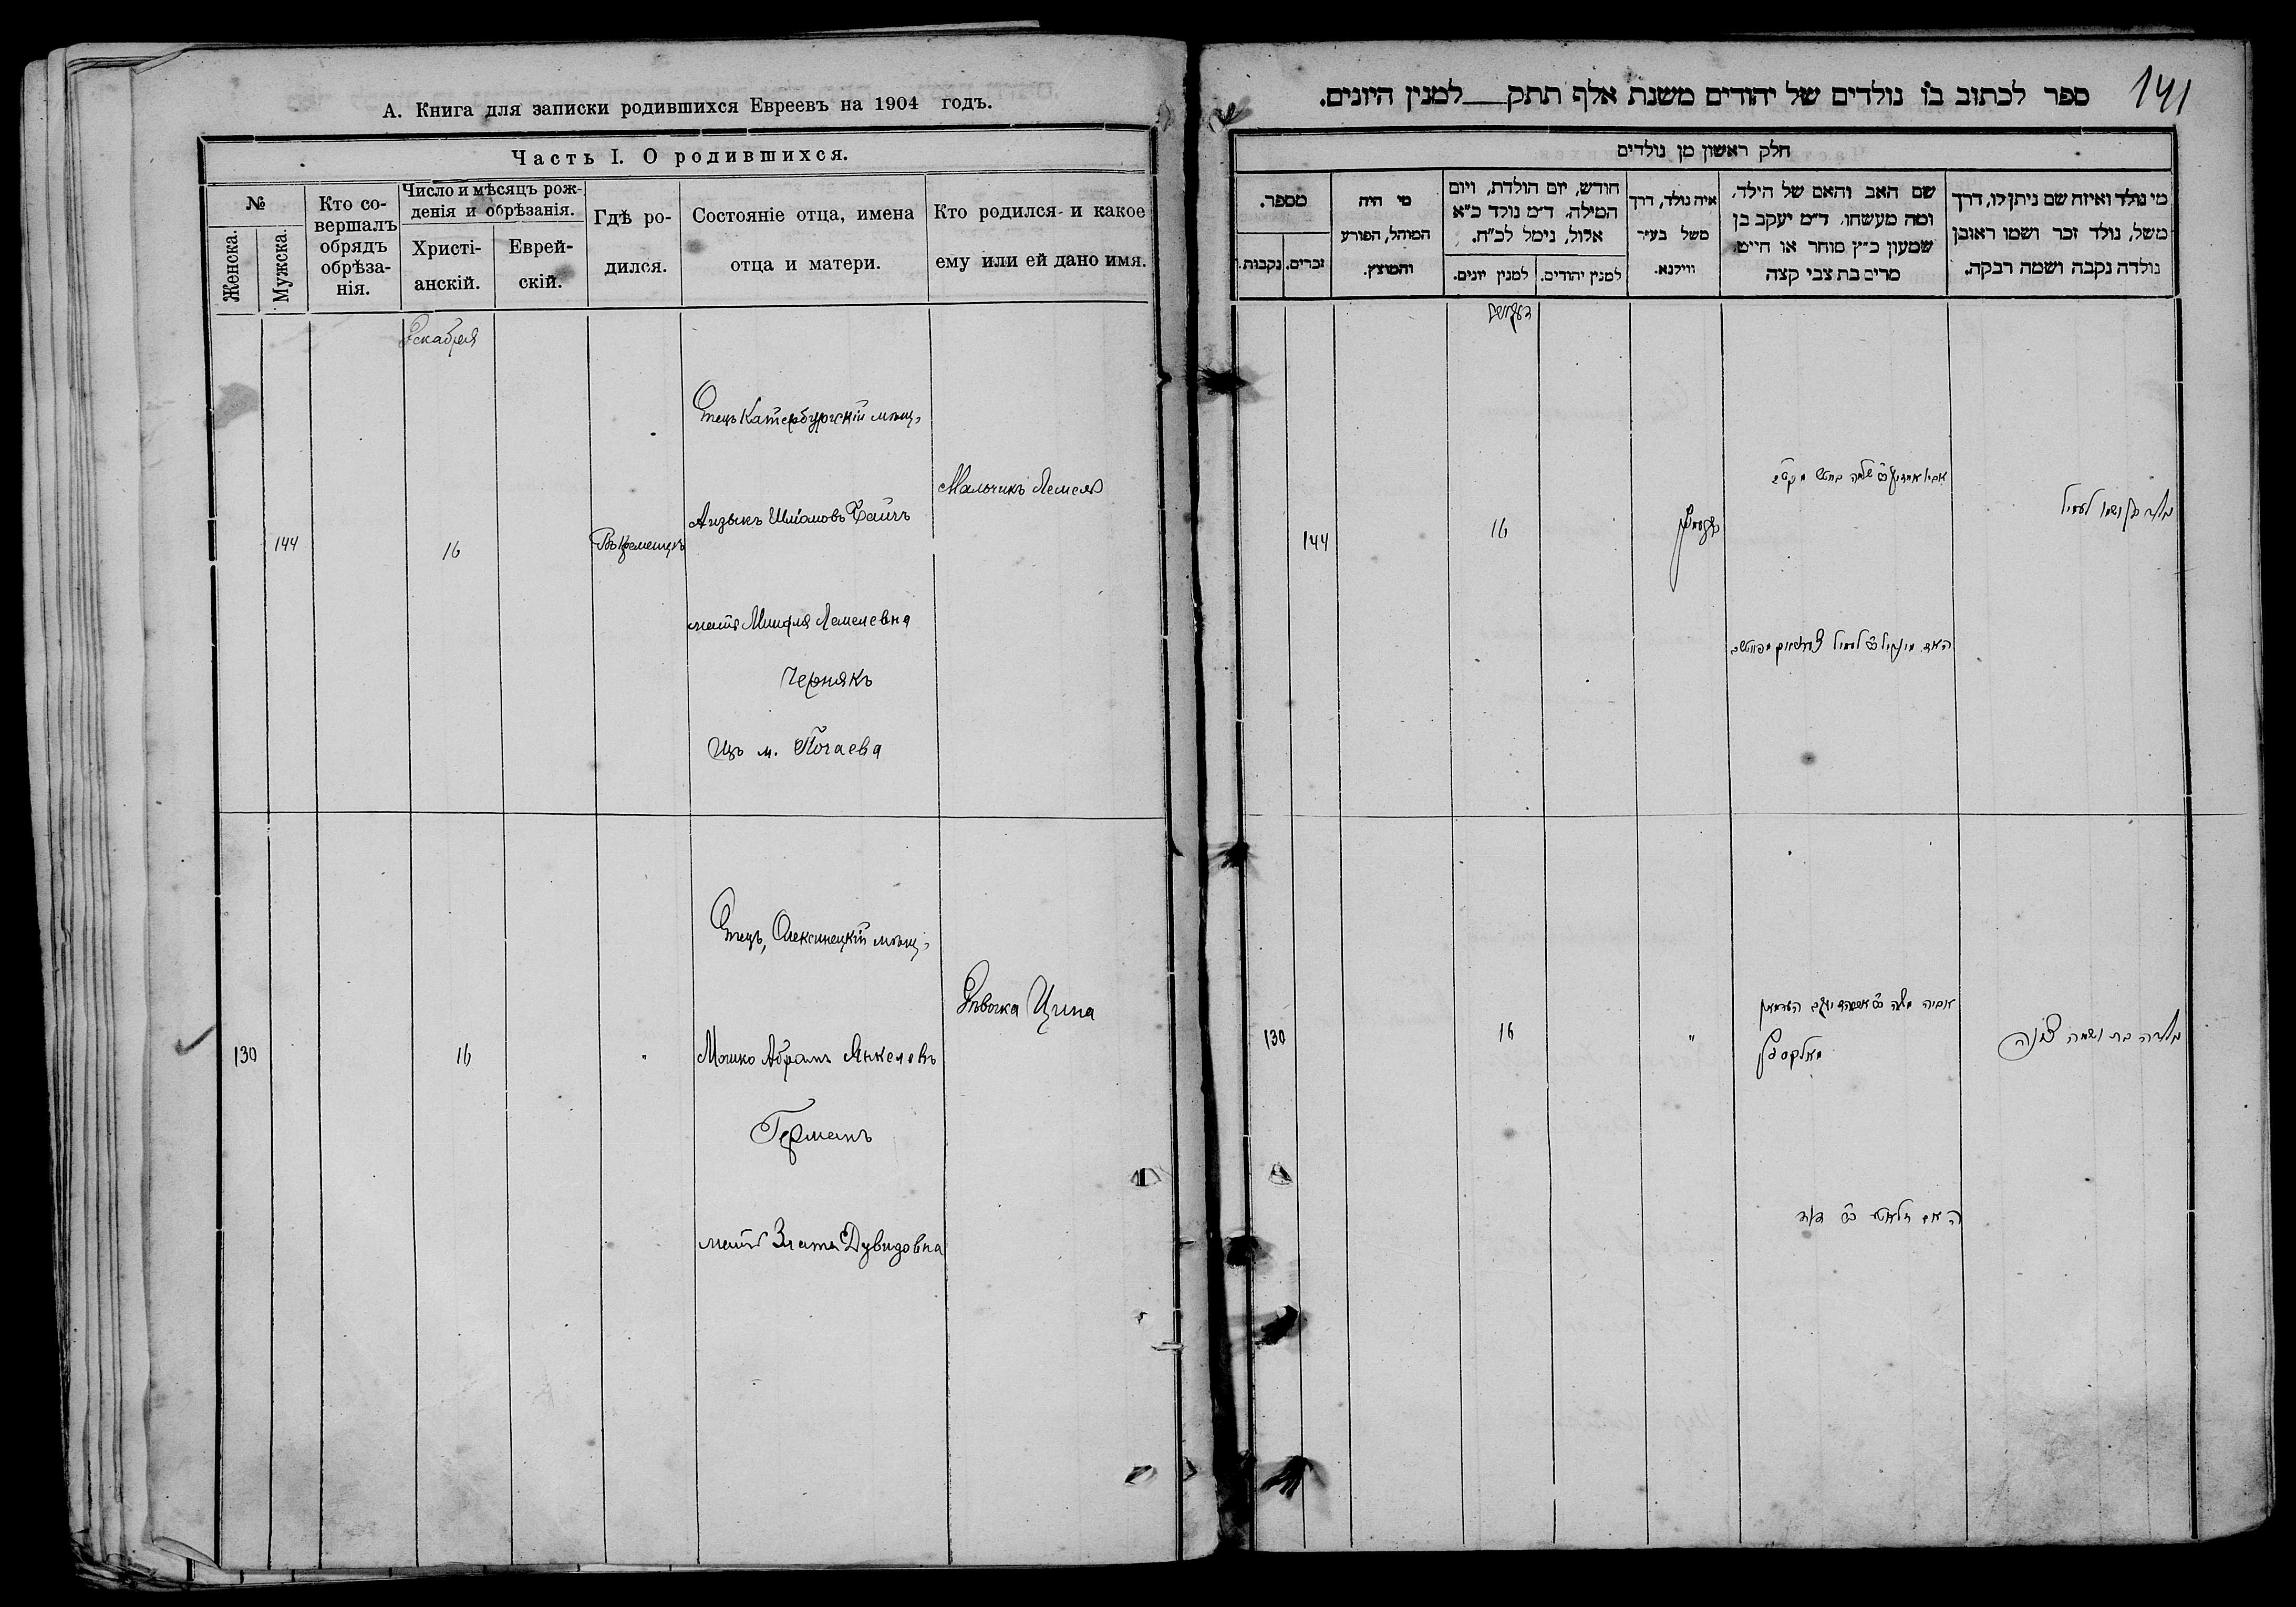 А. Книга для записки родившихся Евреевъ на 1904 годъ.
Часть I. О родившихся.
№
Женска.
Мужска.
Кто со-
вершалъ
обрядъ
обрѣза-
нія.
Число и мѣсяцъ рож-
денія и обрѣзанія.
Христі-
анскій.
Еврей-
скій.
Гдѣ ро-
дился.
Состояніе отца, имена
отца и матери.
Кто родился и какое
ему или ей дано имя.
Декабря
144
16
Въ Кременцѣ
Отецъ Катербургскій мѣщ.
Айзыкъ
мать Лемелевна
Чернякъ
Изъ м. Почаева
Мальчикъ Лемель
130
16
Отецъ, Олексинецкій мѣщ.
Мошко Абрамъ Янкелевъ
Германъ
мать Злата Дувидовна
Дѣвочка Ципа
141
ספר לכתוב בו נולדים של יהודים משנת אלף תתק למנין היונים.
חלק ראשון מן נולדים
מספר.
נקבות.
זכרים.
מי היה
המוהל, הפורע
והמוצץ.
חודש, יום הולדת, ויום
המילה. ד״מ נולד כ״א
אלול, נימל לכ״ח.
למנין יונים.
למנין יהודים.
איה נולד, דרך
משל בעיר
ווילנא.
שם האב והאם של הילד,
ומה מעשהו. ד״מ יעקב בן
שמעון כ״ץ סוחר או חייט.
מרים בת צבי קצה
מי נולד ואיזה שם ניתן לו, דרך
משל, נולד זכר ושמו ראובן
נולדה נקבה ושמה רבקה.
144
16
נולד בן ושמו לעמיל
130
16
"
האם זלאטע דוד
נולדה בת ושמה